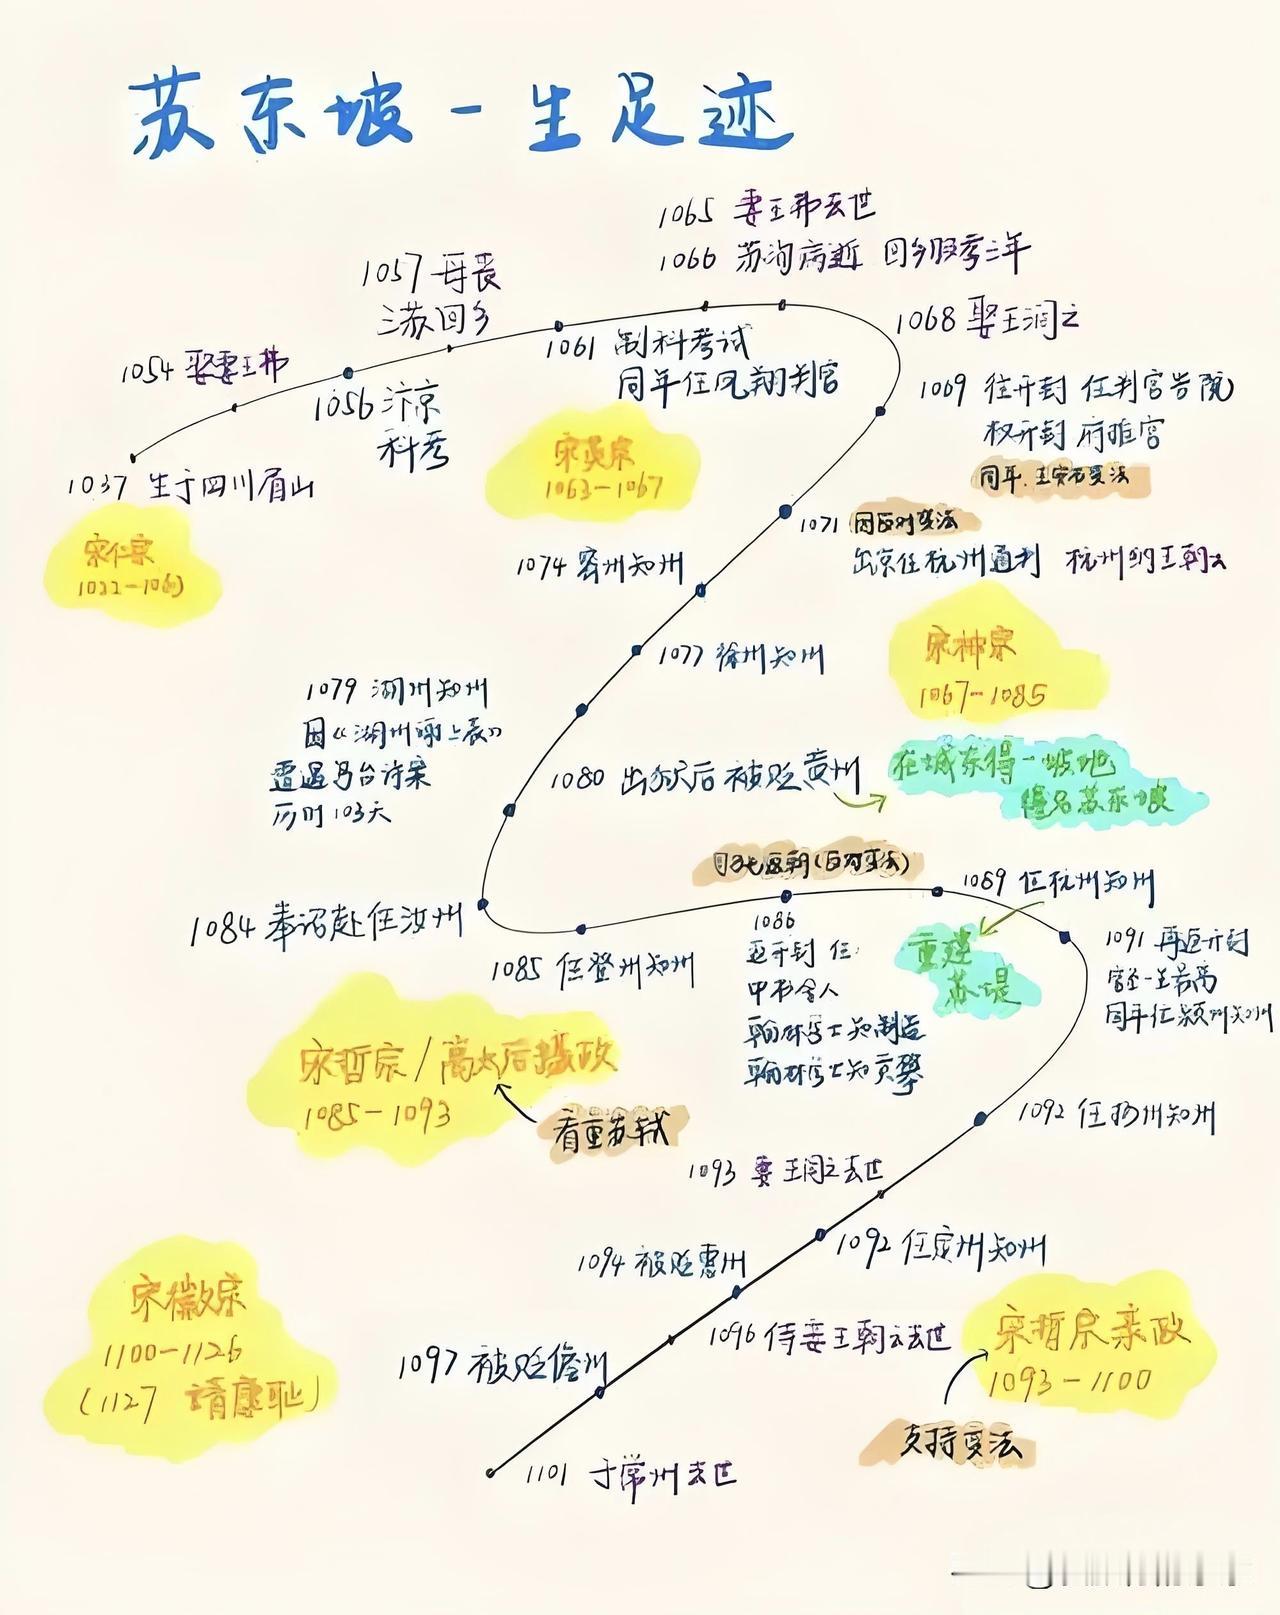 苏东坡一生足迹
1065 妻王弗去世
1066 苏洵病逝 回乡服孝三年
1057 母丧
三苏回乡
1068 娶王润之
1054 娶妻王弗
1061 制科考试
同年任凤翔判官
1056 汴京
科考
1069 往开封 任判官告院
权开封 府推官
同年.王安石变法
宋英宗
1063-1067
1037 生于四川眉山
1071 因反对变法
出京任杭州通判 杭州纳王朝云
宋仁宗
1022-1063
1074 密州知州
1077 徐州知州
宋神宗
1067-1085
1079 湖州知州
因《湖州谢上表》
遭遇乌台诗案
历时103天
1080 出狱后被贬黄州
在城东得一坡地
得名苏东坡
(反对变法)
1089 任杭州知州
1084 奉诏赴任汝州
1086
返开封 任:
中书舍人
翰林学士知制诰
翰林学士知贡举
重建
苏堤
1091 再返开封
官至一生最高
同年任颍州知州
1085 任登州知州
宋哲宗/高太后摄政
1085-1093
看重苏轼
1092 任扬州知州
1093 妻王闰之去世
1092 任定州知州
1094 被贬惠州
1096 侍妾王朝云去世
宋徽宗
1100-1126
(1127 靖康耻)
宋哲宗亲政
1093-1100
1097 被贬儋州
支持变法
1101 于常州去世